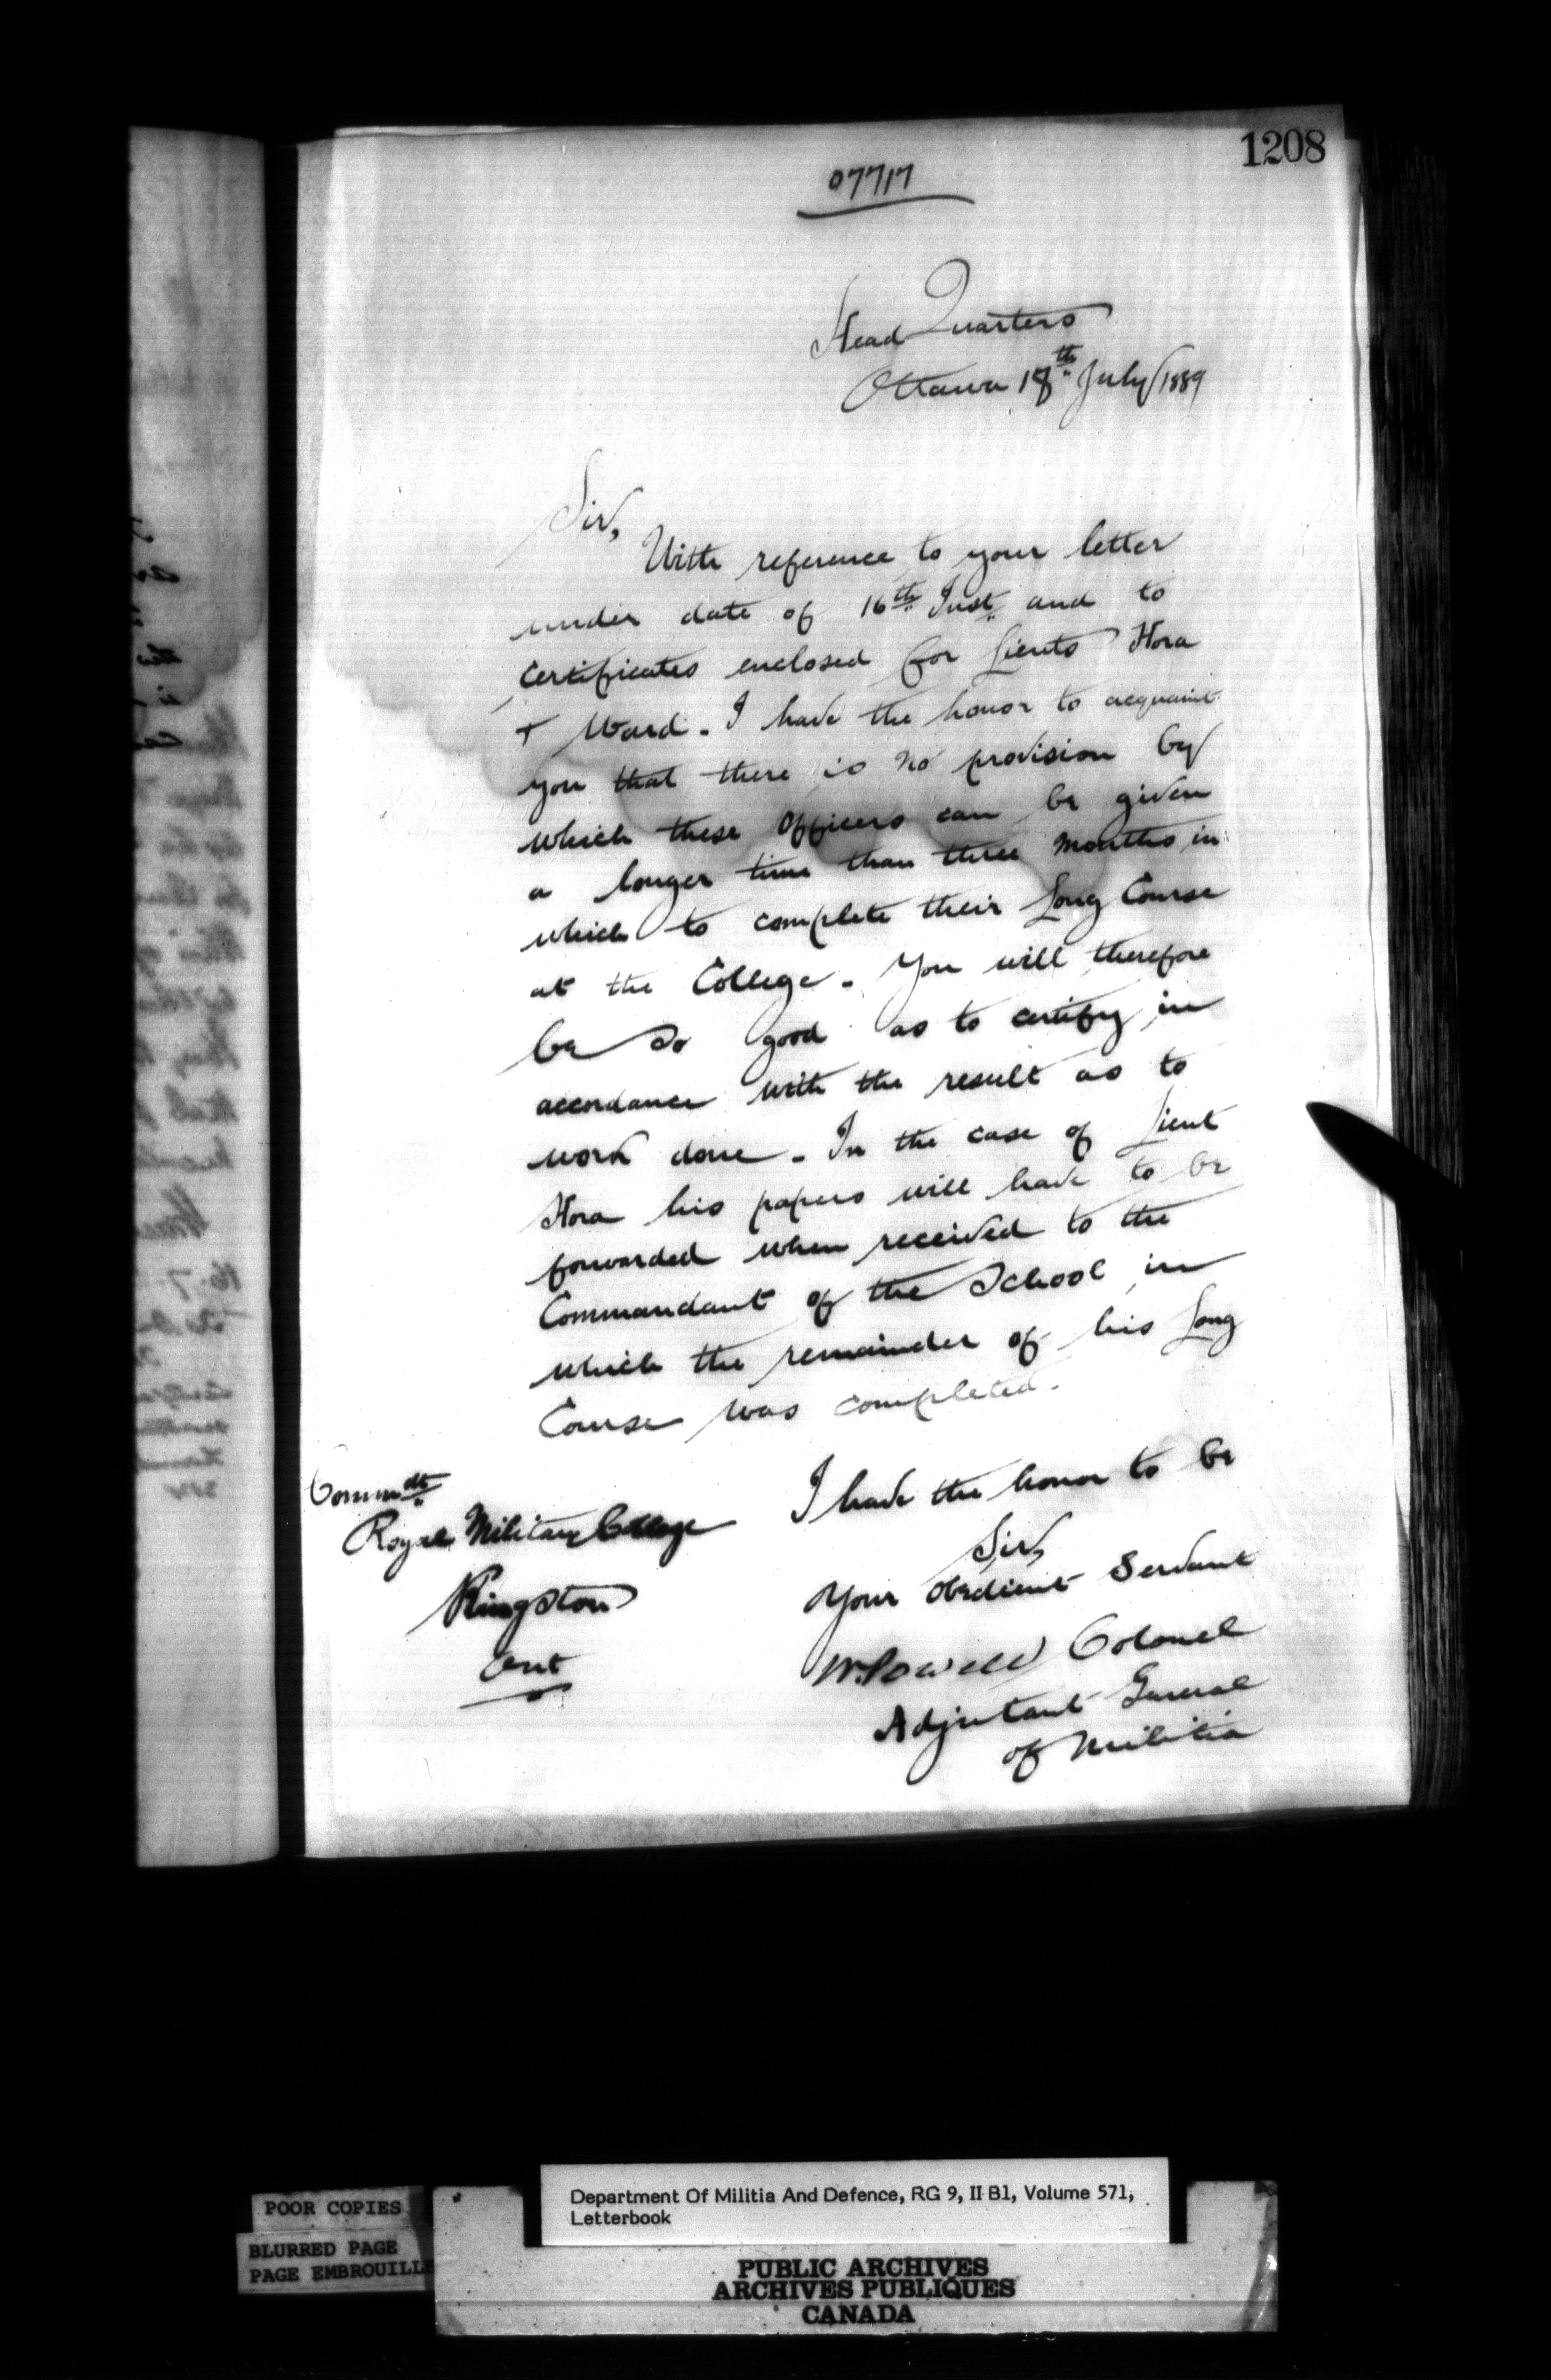 1208
07717
Head Quarters
Ottawa 18th July/1889
Sir,
With reference to your letter
under date of 16th Inst and to
certificates enclosed for Lieuts Hora
+ Ward. I have the honor to acquaint
you that there is no provision by
which these Officers can be given
a longer time than three months in
which to complete their Long Course
at the College. You will therefore
be so good as to certify in
accordance with the result as to
work done. In the case of Lieut
Hora his papers will have to be
forwarded when received to the
Commandant of the School in
which the remainder of his Long
Course was completed.
I have the honor to be
Sir,
Your Obedient Servant
W. Powell Colonel
Adjutant General
of Militia
Commdt
Royal Military College
Kingston
Ont
POOR COPIES
BLURRED PAGE
PAGE EMBROUILLE
Department Of Militia And Defence, RG 9, II B1, Volume 571,
Letterbook
PUBLIC ARCHIVES
ARCHIVES PUBLIQUES
CANADA